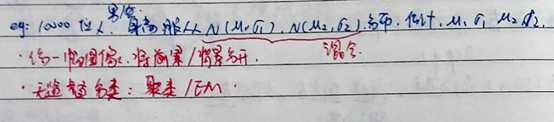 eg: 10000 位人, 男/女 身高 服从 N(μ₁, σ₁), N(μ₂, σ₂) 分布. 估计. μ₁ σ₁ μ₂ σ₂.
混合.
· 给一幅图像, 将前景/背景分开.
· 无监督分类: 聚类/EM.